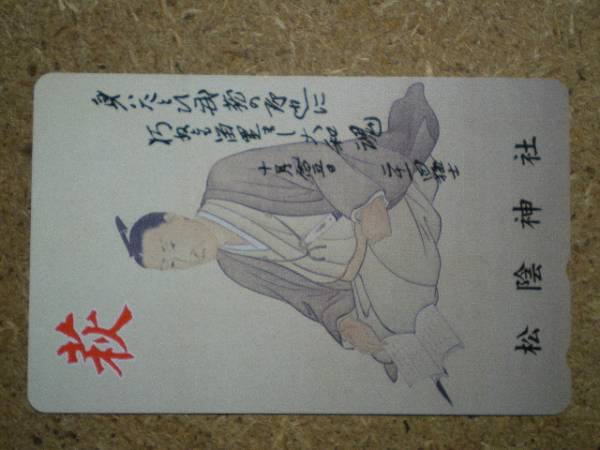 萩
身ハたとひ武蔵の野辺に
朽ぬとも留置まし大和魂
十月念五日
二十一回猛士
松陰神社